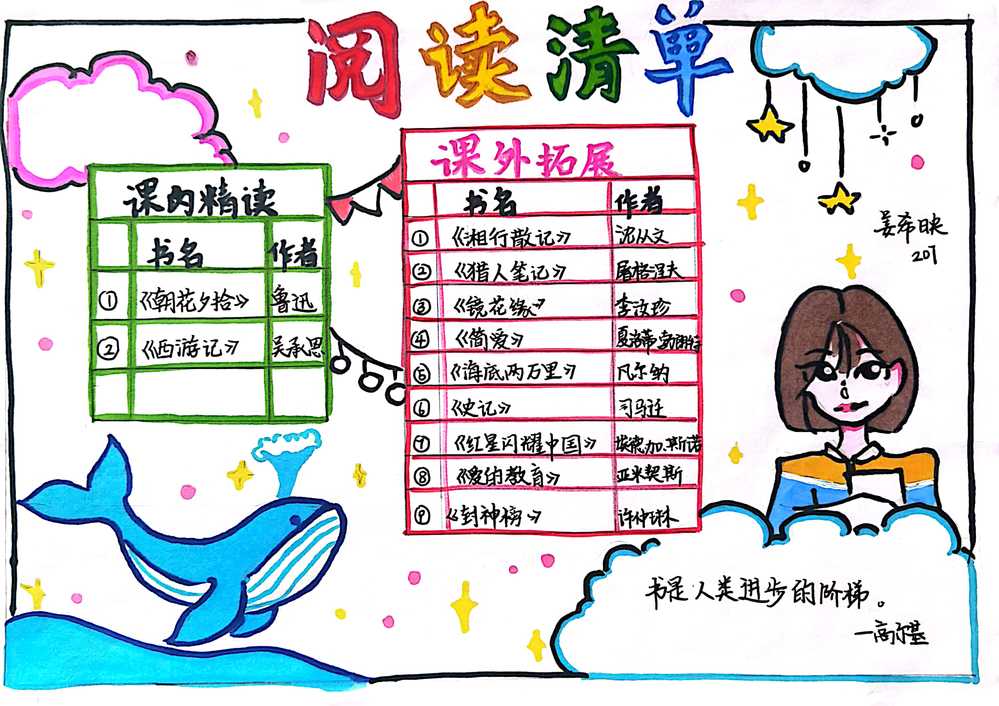 阅读清单
课内精读
书名 作者
① 《朝花夕拾》 鲁迅
② 《西游记》 吴承恩
课外拓展
书名 作者
① 《湘行散记》 沈从文
② 《猎人笔记》 屠格涅夫
③ 《镜花缘》 李汝珍
④ 《简爱》 夏洛蒂·勃朗特
⑤ 《海底两万里》 凡尔纳
⑥ 《史记》 司马迁
⑦ 《红星闪耀中国》 埃德加.斯诺
⑧ 《爱的教育》 亚米契斯
⑨ 《封神榜》 许仲琳
姜希映
201
书是人类进步的阶梯。
—高尔基